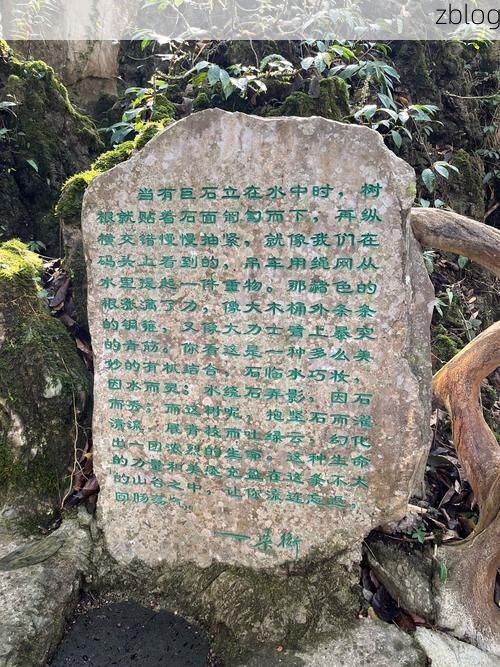 zblog
当有巨石立在水中时，树
根就贴着石面匍匐而下，再纵
横交错慢慢抽紧，就像我们在
码头上看到的，吊车用绳网从
水里提起一件重物。那赭色的
根涨满了力，像大木桶外条条
的钢箍，又像大力士臂上暴突
的青筋。你看这是一种多么美
妙的有机结合，石临水巧妆，
因水而灵；水绕石弄影，因石
而秀；而这树呢，抱坚石而濯
清流，展青枝而吐绿云，幻化
出一团浓烈的生命。这种生命
的力量和美橡充盈在这条不大
的山谷之中，让你流连忘返，
回肠荡气。
——梁衡